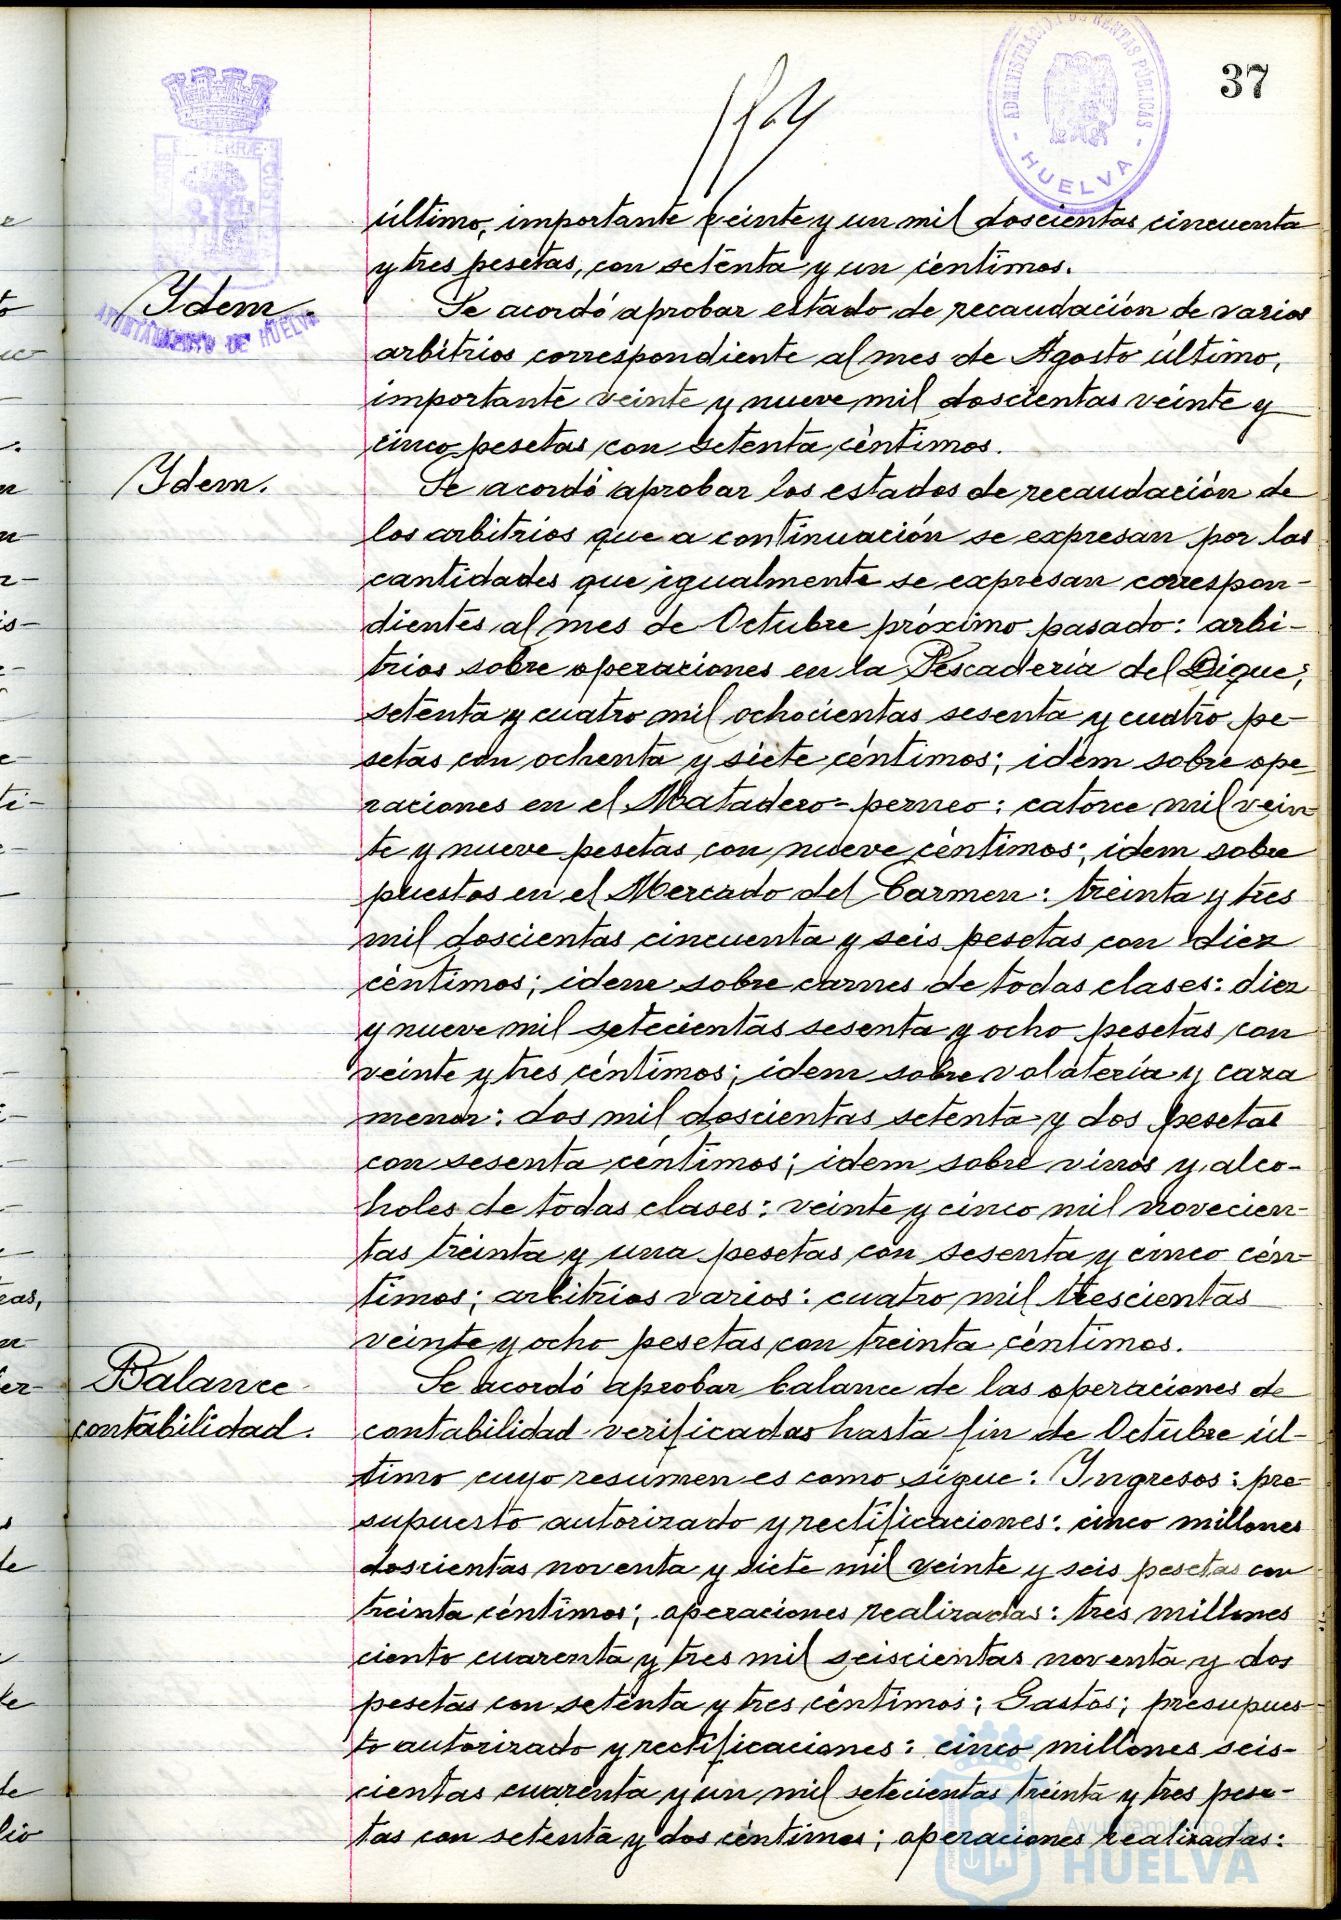 37
ADMINISTRACIÓN DE RENTAS PÚBLICAS
- HUELVA -
AYUNTAMIENTO DE HUELVA
último, importante veinte y un mil doscientas cincuenta
y tres pesetas, con setenta y un céntimos.
Ydem.
Se acordó aprobar estado de recaudación de varios
arbitrios correspondiente al mes de Agosto último,
importante veinte y nueve mil doscientas veinte y
cinco pesetas con setenta céntimos.
Ydem.
Se acordó aprobar los estados de recaudación de
los arbitrios que a continuación se expresan por las
cantidades que igualmente se expresan correspon-
dientes al mes de Octubre próximo pasado: arbi-
trios sobre operaciones en la Pescadería del Dique;
setenta y cuatro mil ochocientas sesenta y cuatro pe-
setas con ochenta y siete céntimos; idem sobre ope
raciones en el Matadero=perneo: catorce mil vein-
te y nueve pesetas con nueve céntimos; idem sobre
puestos en el Mercado del Carmen: treinta y tres
mil doscientas cincuenta y seis pesetas con diez
céntimos; idem sobre carnes de todas clases: diez
y nueve mil setecientas sesenta y ocho pesetas con
veinte y tres céntimos; idem sobre volatería y caza
menor: dos mil doscientas setenta y dos pesetas
con sesenta céntimos; idem sobre vinos y alco-
holes de todas clases: veinte y cinco mil novecien-
tas treinta y una pesetas con sesenta y cinco cén-
timos; arbitrios varios: cuatro mil trescientas
veinte y ocho pesetas con treinta céntimos.
Balance
contabilidad.
Se acordó aprobar balance de las operaciones de
contabilidad verificadas hasta fin de Octubre úl-
timo cuyo resumen es como sigue: Yngresos: pre-
supuesto autorizado y rectificaciones: cinco millones
doscientas noventa y siete mil veinte y seis pesetas con
treinta céntimos; operaciones realizadas: tres millones
ciento cuarenta y tres mil seiscientas noventa y dos
pesetas con setenta y tres céntimos; Gastos; presupues-
to autorizado y rectificaciones: cinco millones seis-
cientas cuarenta y un mil setecientas treinta y tres pese-
tas con setenta y dos céntimos; operaciones realizadas:
Ayuntamiento de
HUELVA